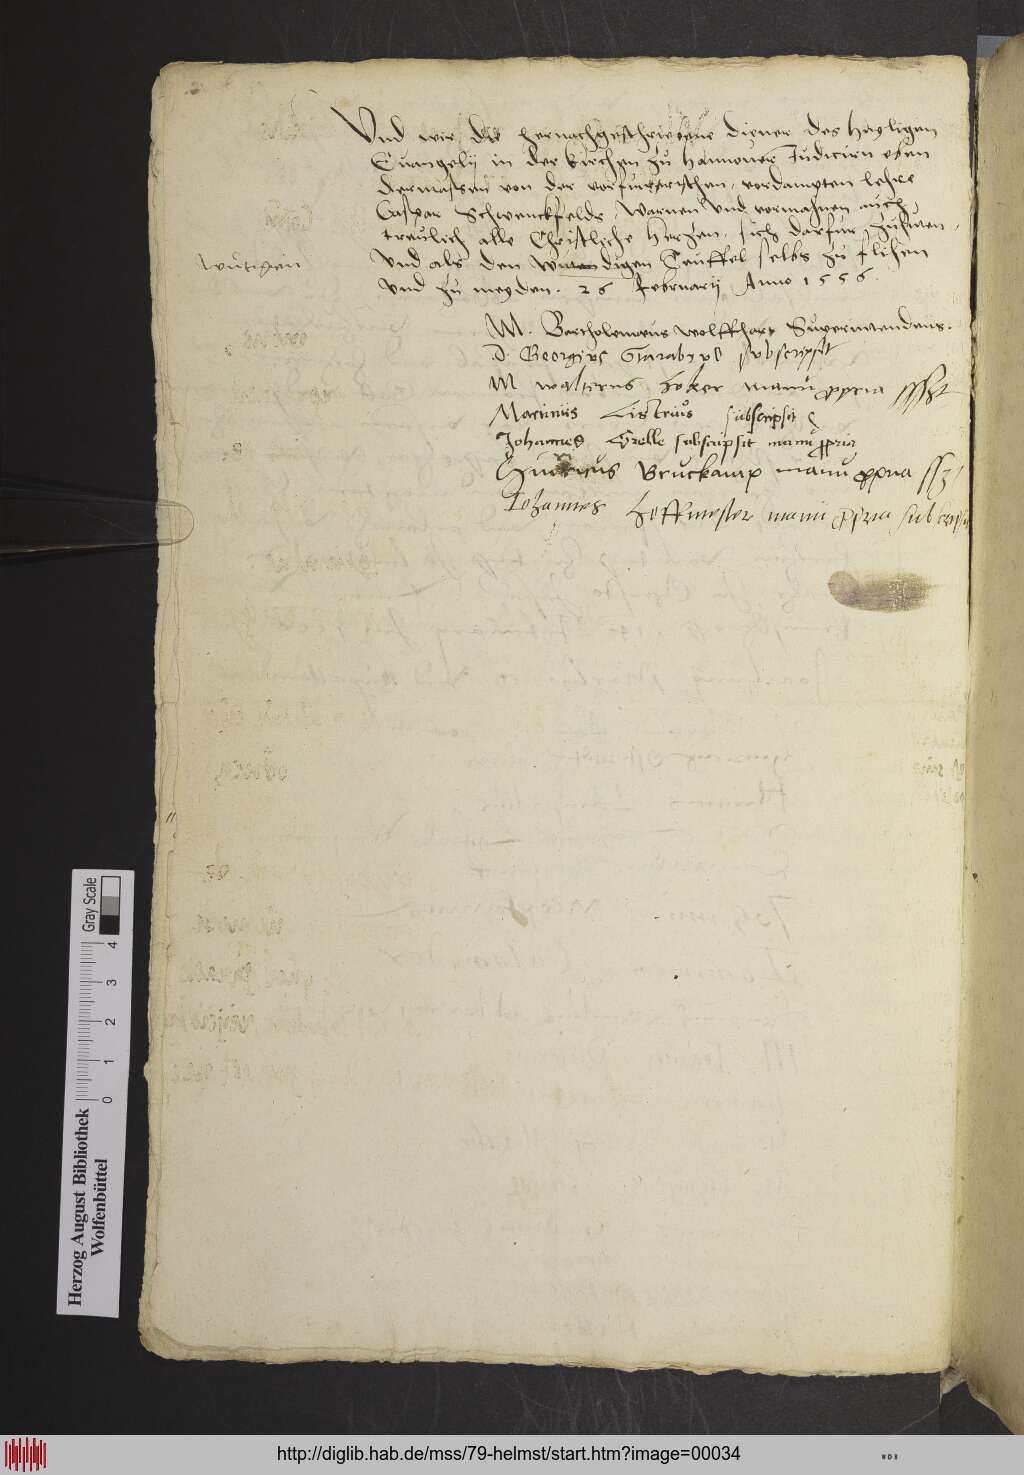 Vnd wir die hernachgeschriebene diener des Heyligen
Euangelij in der kirchen zu Hannouer Judiciren eben
dermassen von der verfurerischen, verdampten lehre
Caspar Schwenckfelds, Warnen Vnd vermahnen auch
treulich alle Christliche Hertzen, sich darfur zuhuten,
Vnd als den digen Teuffel selbs zu flihen
wutigen
Vnd zu meyden. 26 Februarij Anno 1556.
M. Bartholomeus Wolffhart Superintendens.
D. Georgius Scarabeus subscripsit
M Walterus Hoker manu ppria ssszt
Martinus Listrius subscripsit
Johannes Grelle subscripsit manu ppria
Henricus Bruckamp manu ppria ssz
Johannes Hoffmester manu ppria subscripsit
Gray Scale
0 1 2 3 4
Herzog August Bibliothek
Wolfenbüttel
http://diglib.hab.de/mss/79-helmst/start.htm?image=00034
WDB